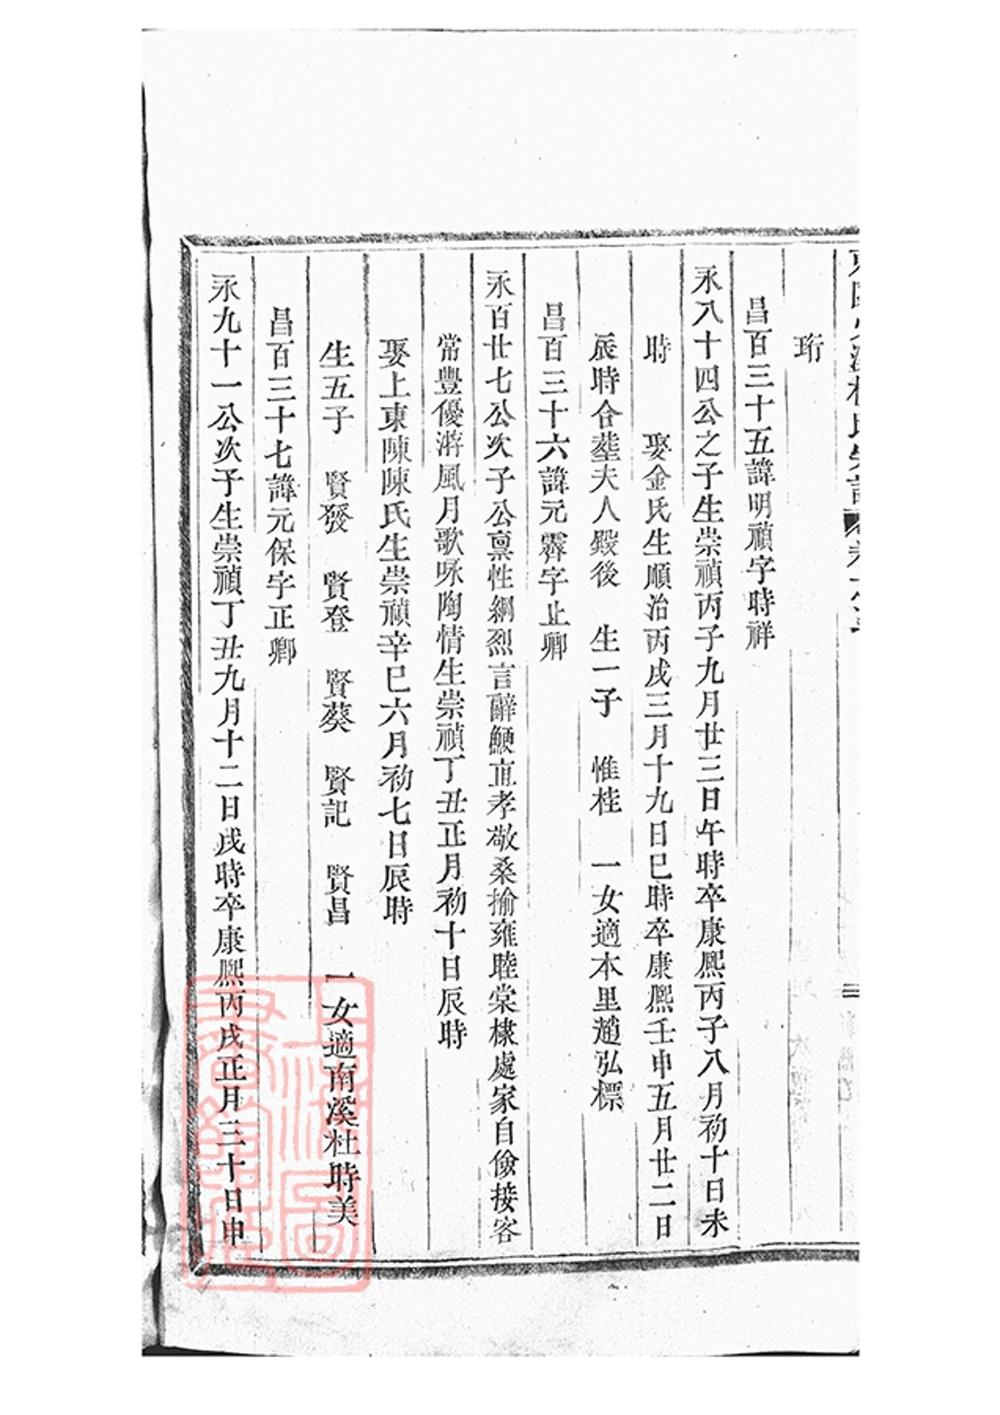 珩
昌百三十五諱明禎字時祥
永八十四公之子生崇禎丙子九月廿三日午時卒康熙丙子八月初十日未
時 娶金氏生順治丙戌三月十九日巳時卒康熙壬申五月廿二日
辰時合塟夫人殿後 生一子 惟桂 一女適本里趙弘標
昌百三十六諱元霽字止卿
永百廿七公次子公禀性綱烈言辭鯁直孝敬桑榆雍睦棠棣處家自儉接客
常豐優游風月歌咏陶情生崇禎丁丑正月初十日辰時
娶上東陳陳氏生崇禎辛巳六月初七日辰時
生五子 賢發 賢登 賢葵 賢記 賢昌 一女適南溪杜時美
昌百三十七諱元保字正卿
永九十一公次子生崇禎丁丑九月十二日戌時卒康熙丙戌正月三十日申